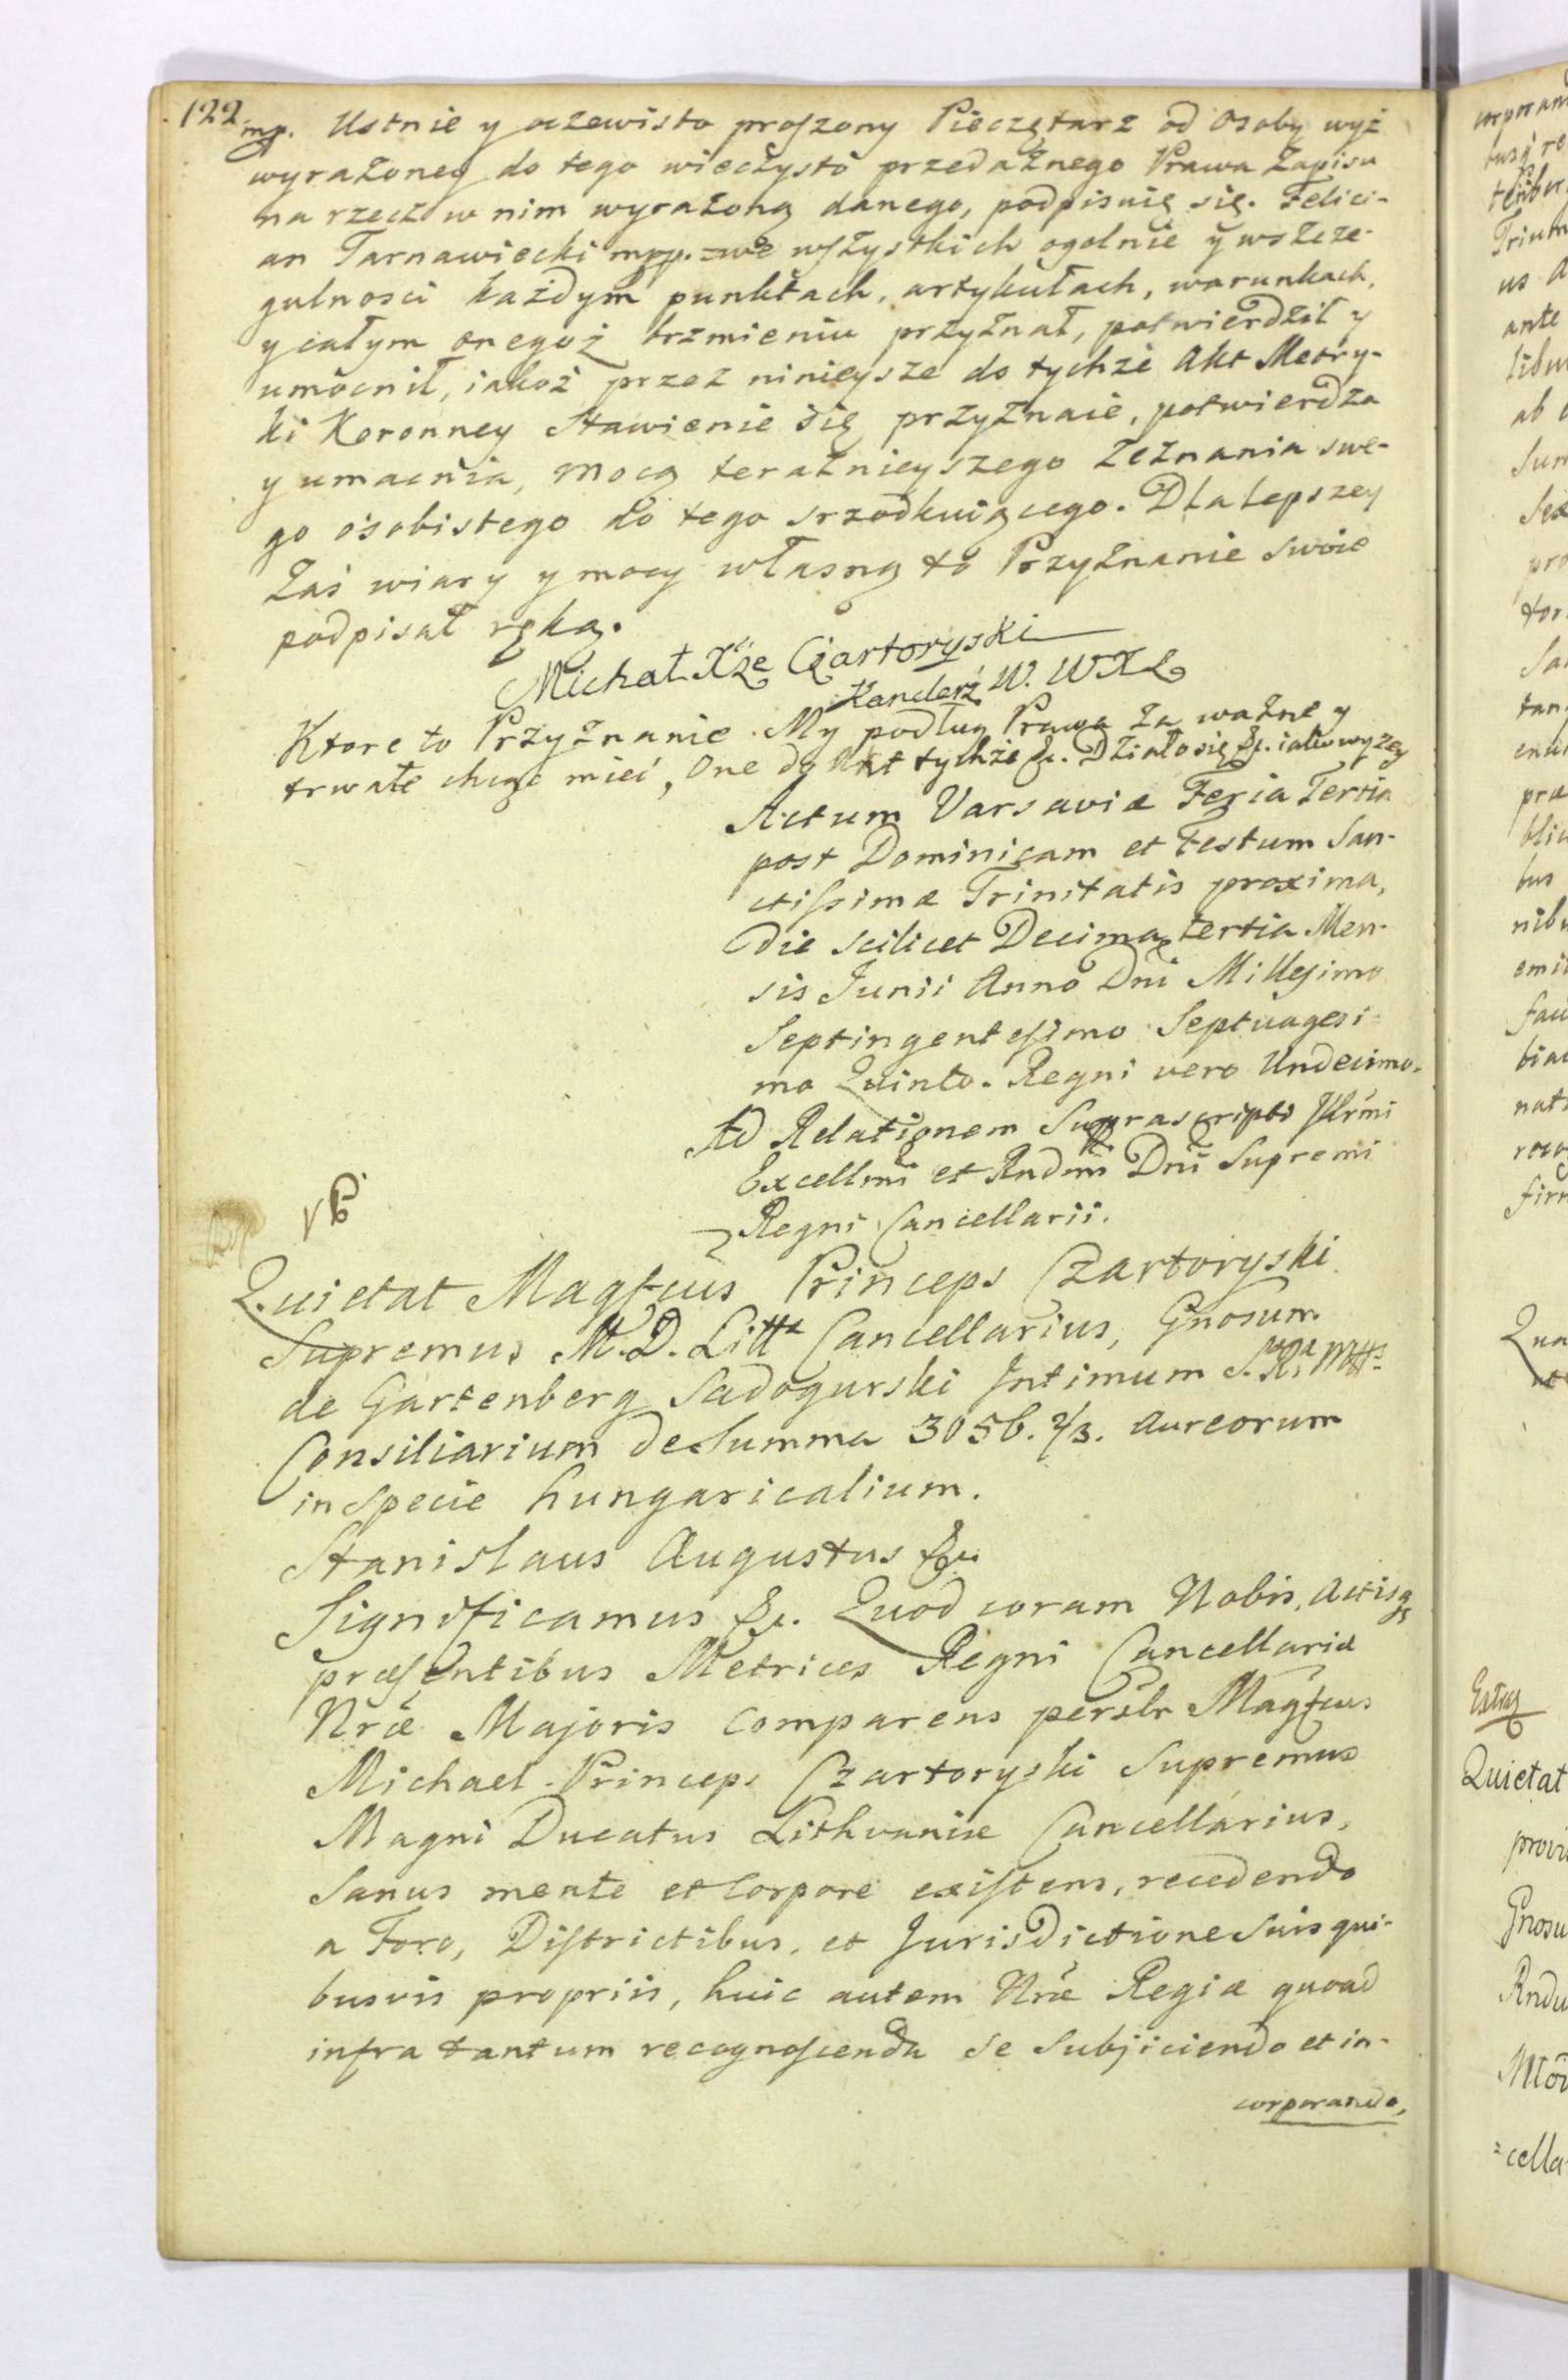 122
mp. Ustnie y oczewisto proszony Pieczętarz od Osoby wyż
wyrażoney do tego wieczysto przedażnego Prawa Zapisu
na rzecz w nim wyrażoną danego, podpisuię się. Felici-
an Tarnawiecki mpp. we wszystkich ogolnie y wszcze-
gulnosci każdym punktach, artykułach, warunkach,
y całym onegoż brzmieniu przyznał, potwierdził y
umocnił, iakoż przez ninieysze do tychże Akt Metry-
ki Koronney Stawienie się przyznaie, potwierdza
y umacnia, mocą teraznieyszego Zeznania swe-
go osobistego do tego srzodkuiącego. Dla lepszey
Zaś wiary y mocy własną to Przyznanie swoie
podpisał ręką.
Michał Xże Czartoryski
Kanclerz W. WXL
Ktore to Przyznanie My podług Prawa za ważne y
trwałe chcąc mieć, One do Akt tychże &c. Działo się &c. iako wyzey
Actum Varsaviæ Feria Tertia
post Dominicam et Festum San-
ctissimæ Trinitatis proxima,
die scilicet Decima tertia Men-
sis Junii Anno Dni Millesimo
Septingentesimo Septuagesi-
mo Quinto. Regni vero Undecimo.
Ad Relationem Suprascripti Illrmi
Excellmi et Rndmi Dni Supremi
Regni Cancellarii.
Quietat Magfcus Princeps Czartoryski
Supremus M. D. Littæ Cancellarius, Gnosum
de Gartenberg Sadogurski Intimum S. R. Mttis
Consiliarium de Summa 3056. 2/3. Aureorum
in Specie hungaricalium.
Stanislaus Augustus &c.
Significamus &c. Quod coram Nobis, Actisq
præsentibus Metrices Regni Cancellariæ
Nræ Majoris comparens perslr Magfcus
Michael Princeps Czartoryski Supremus
Magni Ducatus Lithvaniæ Cancellarius,
Sanus mente et Corpore existens, recedendo
a Foro, Districtibus, et Jurisdictione Suis qui-
busvis propriis, huic autem Nræ Regiæ quoad
infra tantum recognoscenda se subjiciendo et in-
corporando,
Quietat